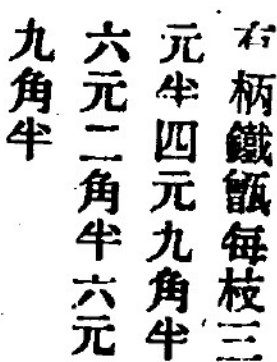 右柄鐵甑每枝三
元半四元九角半
六元二角半六元
九角半